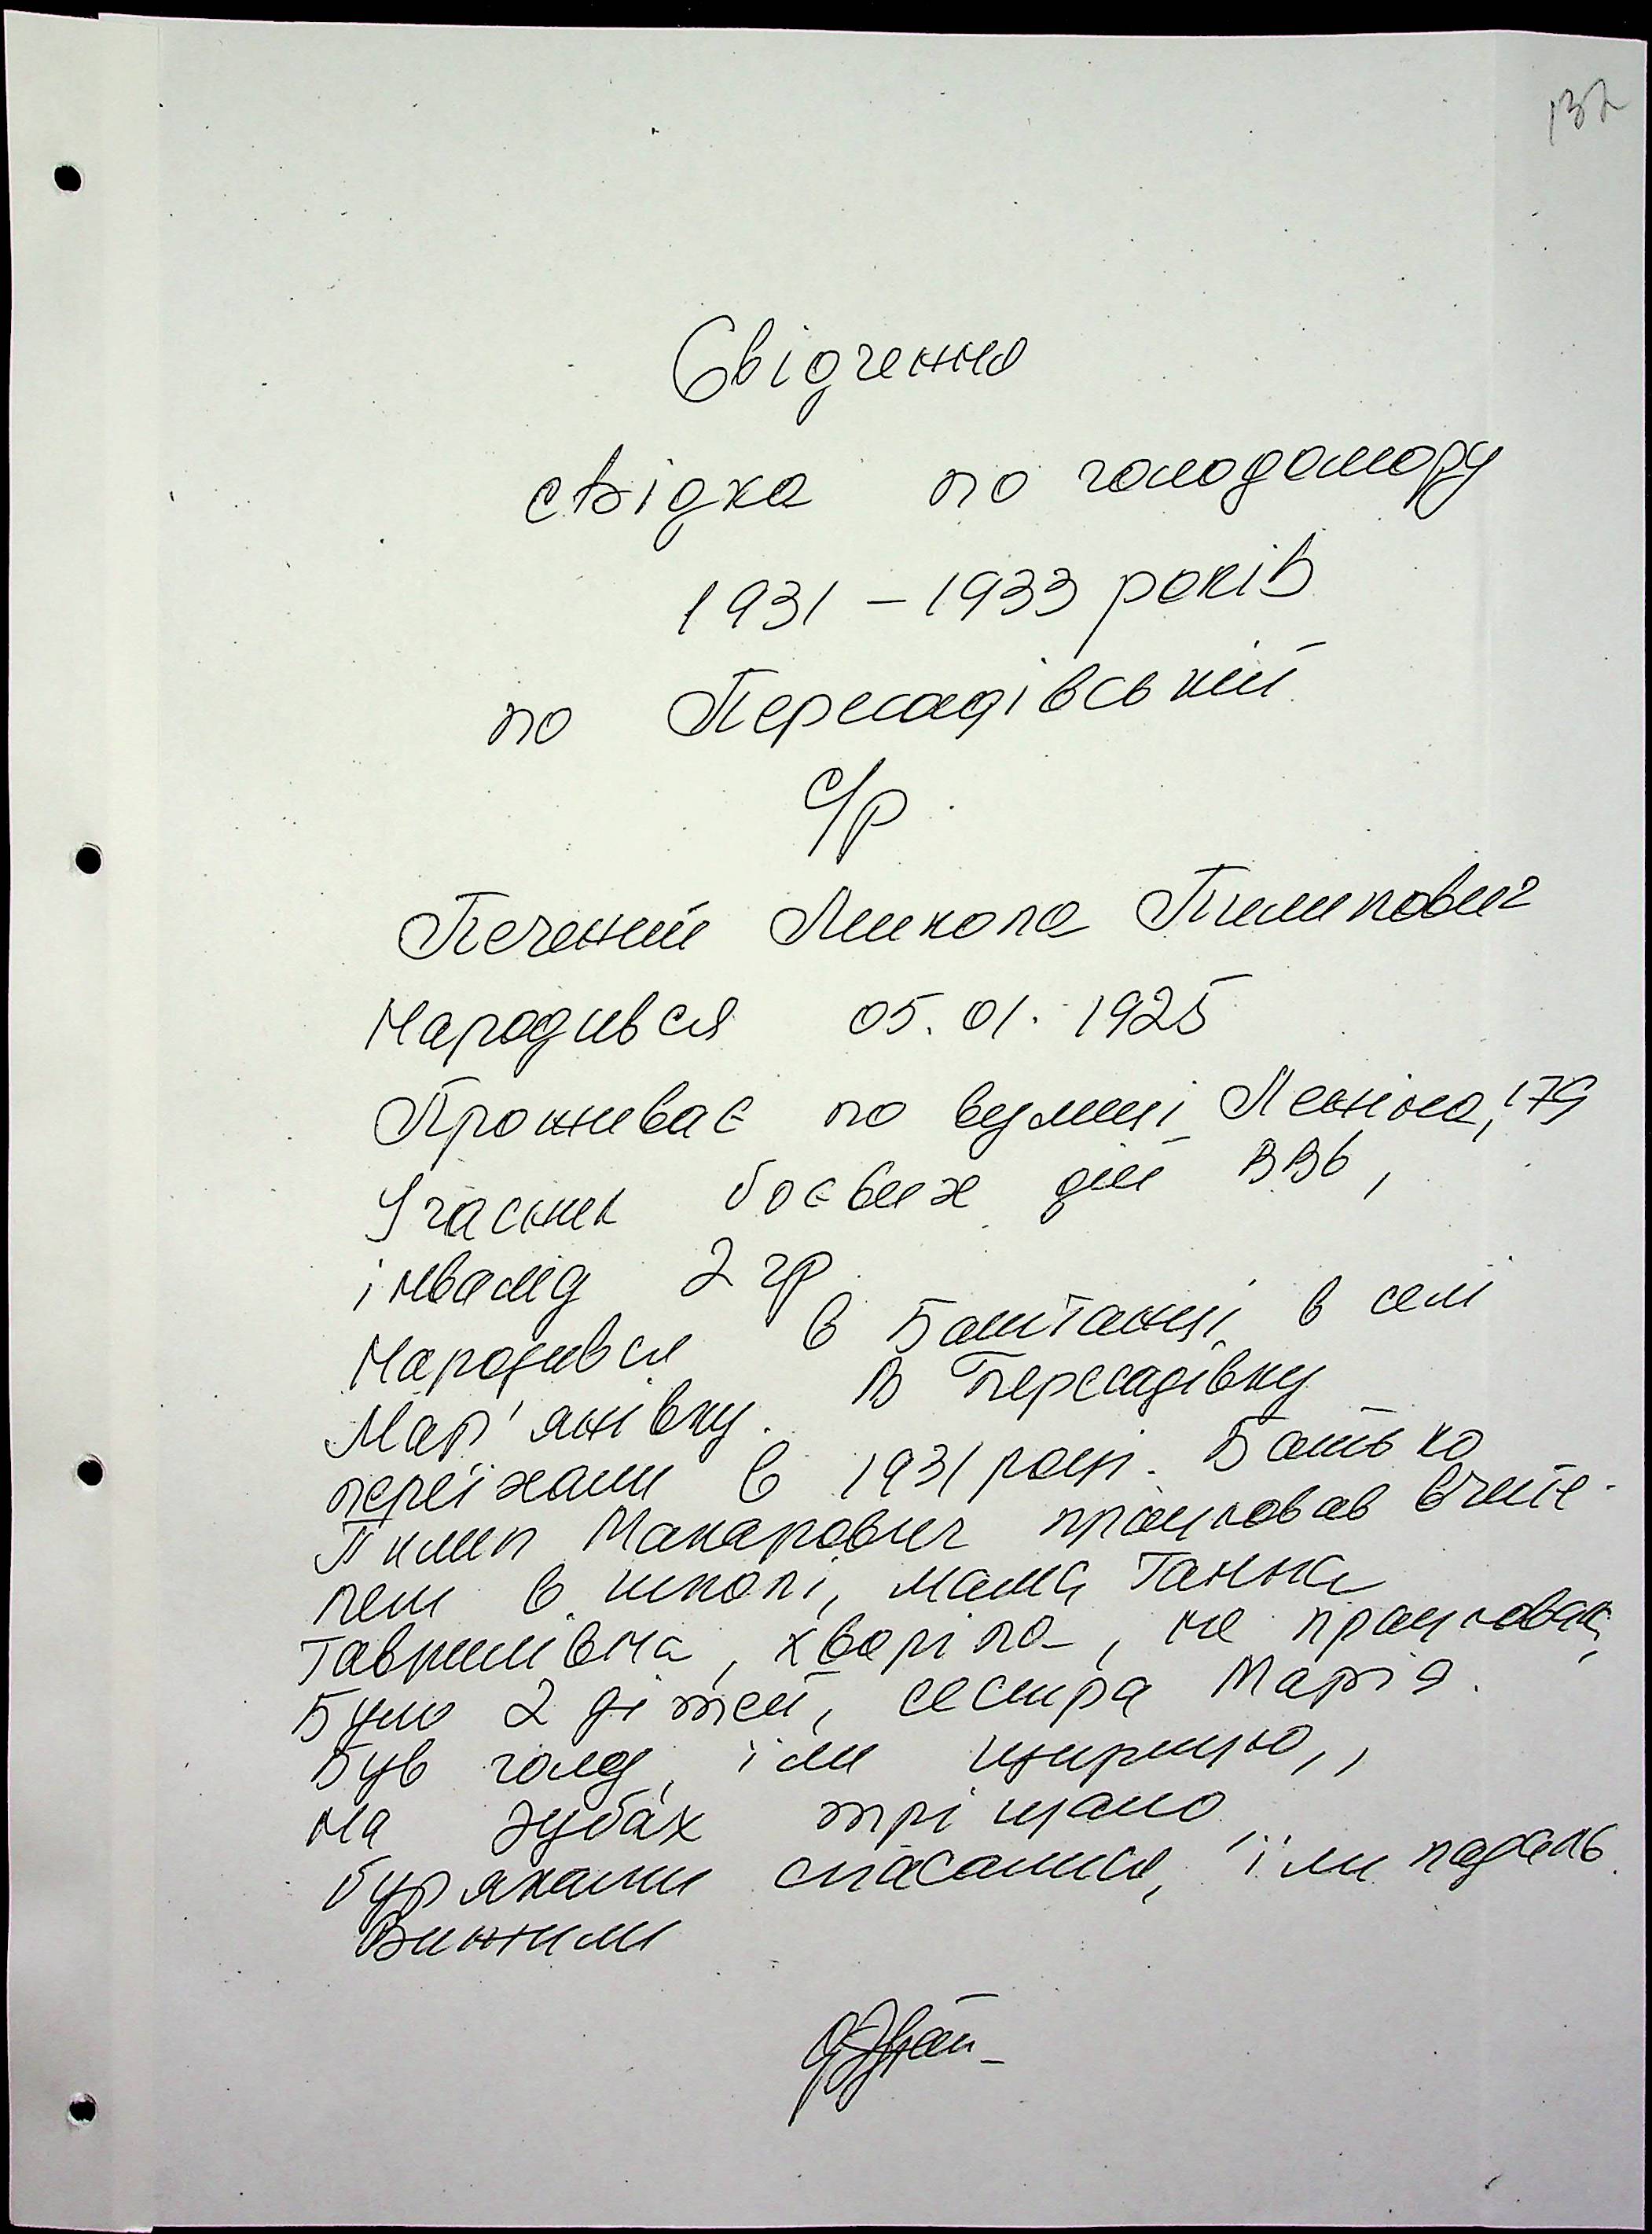 132
Свідчення
свідка по голодомору
1931 – 1933 років
по Пересадівській
с/р.
Печений Микола Пилипович
Народився 05.01.1925
Проживає по вулиці Леніна, 179
Учасник боєвих дій ВВв,
інвалід 2 гр
Народився в Баштанці, в селі
Мар'янівку. В Пересадівку
переїхали в 1931 році. Батько
Пилип Макарович працював вчите-
лем в школі, мама Ганна
Гаврилівна, хворіла, не працювала,
Було 2 дітей, сестра Марія.
Був голод, їли щирицю,,
на зубах тріщало
буряками спасались, їли падаль.
Вижили